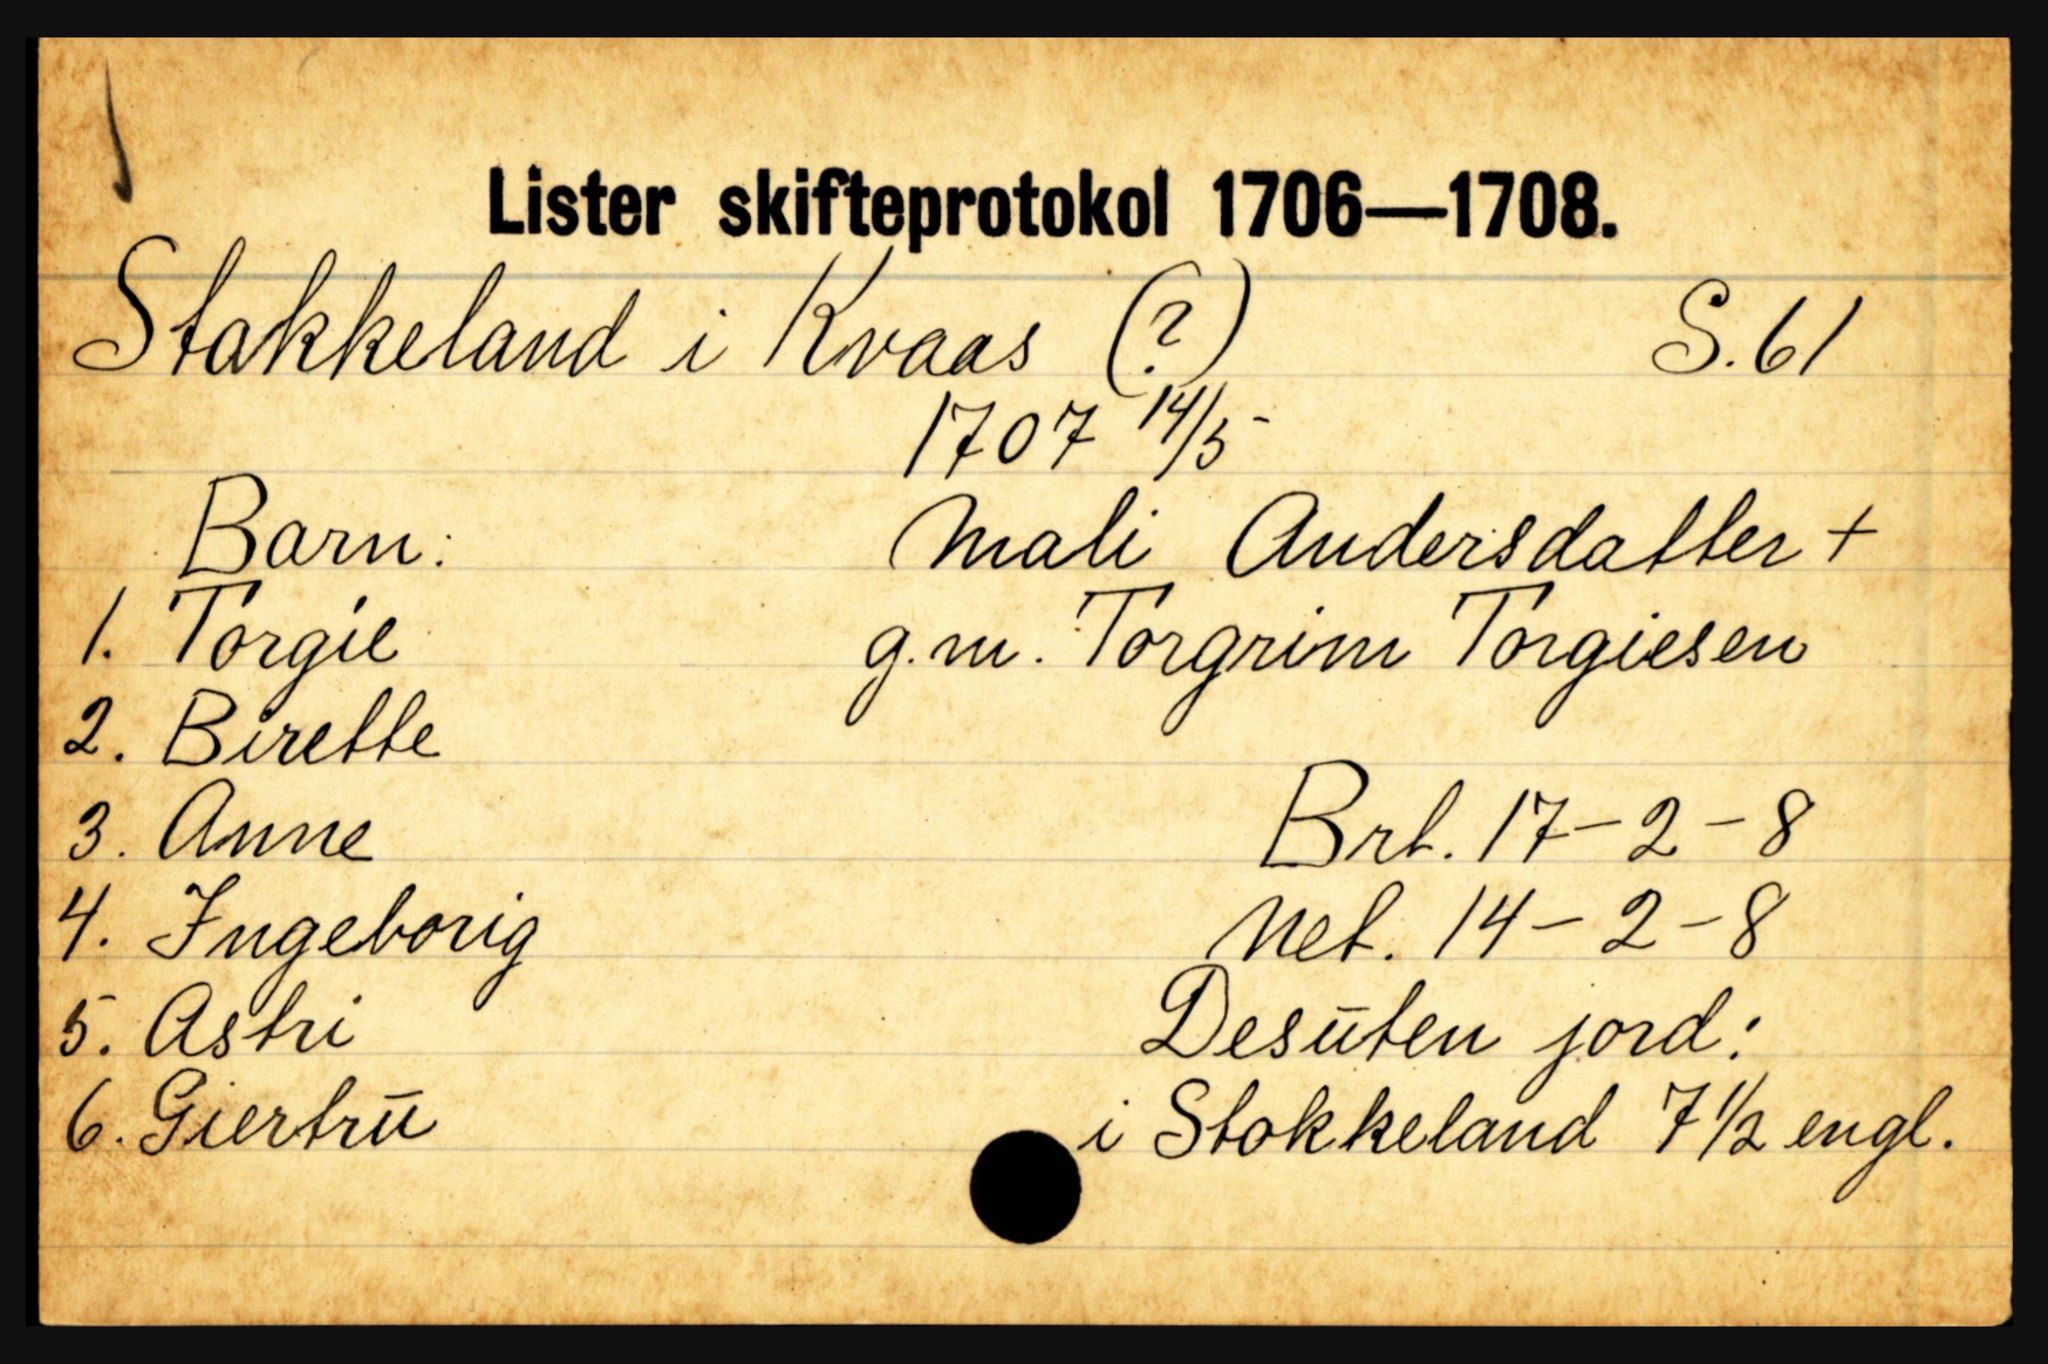 Lister skifteprotokol 1706—1708.
Stakkeland i Kvaas (?) S. 61
1707 14/5
Barn: Mali Andersdatter +
1. Torgie g.m. Torgrim Torgiesen
2. Birette
3. Anne Brt. 17-2-8
4. Ingeborig Net. 14-2-8
5. Astri Desuten jord:
6. Giertru i Stokkeland 7 1/2 engl.